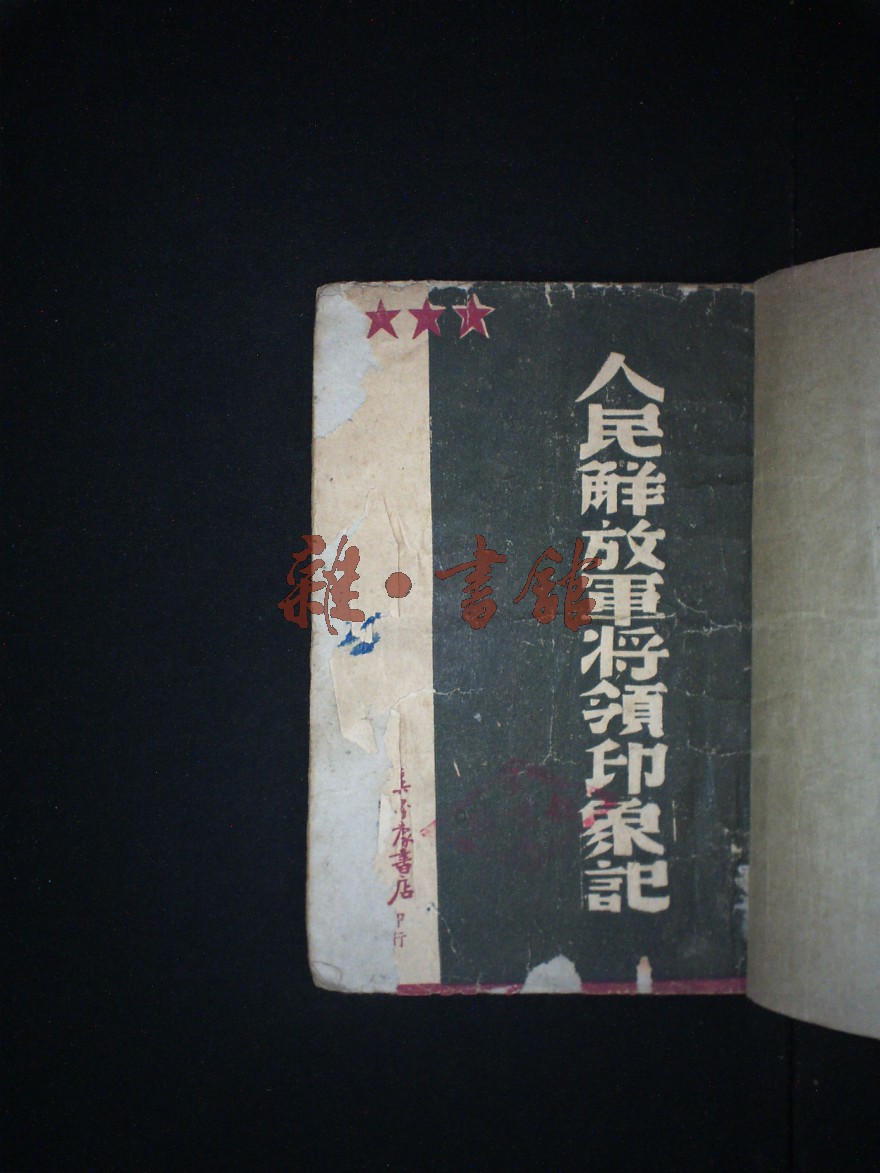 人民解放軍将領印象記
書店
印行
雜·書館